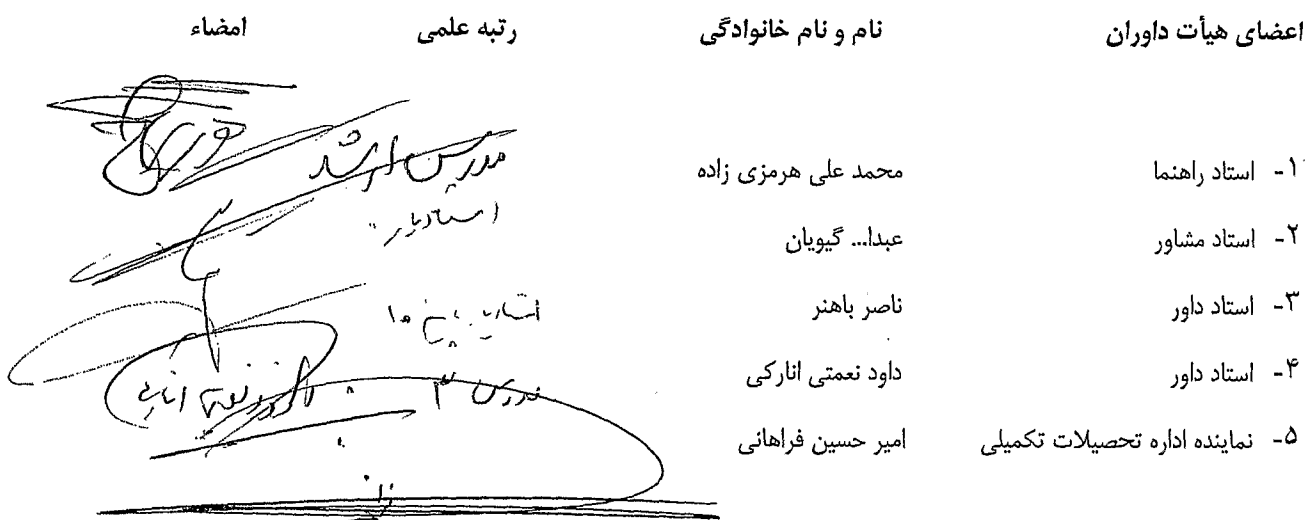 اعضای هیأت داوران نام و نام خانوادگی رتبه علمی امضاء
۱- استاد راهنما محمد علی هرمزی زاده مدرس ارشد
۲- استاد مشاور عبدا... گیویان استادیار
۳- استاد داور ناصر باهنر
۴- استاد داور داود نعمتی انارکی مدرس ۳
۵- نماینده اداره تحصیلات تکمیلی امیر حسین فراهانی